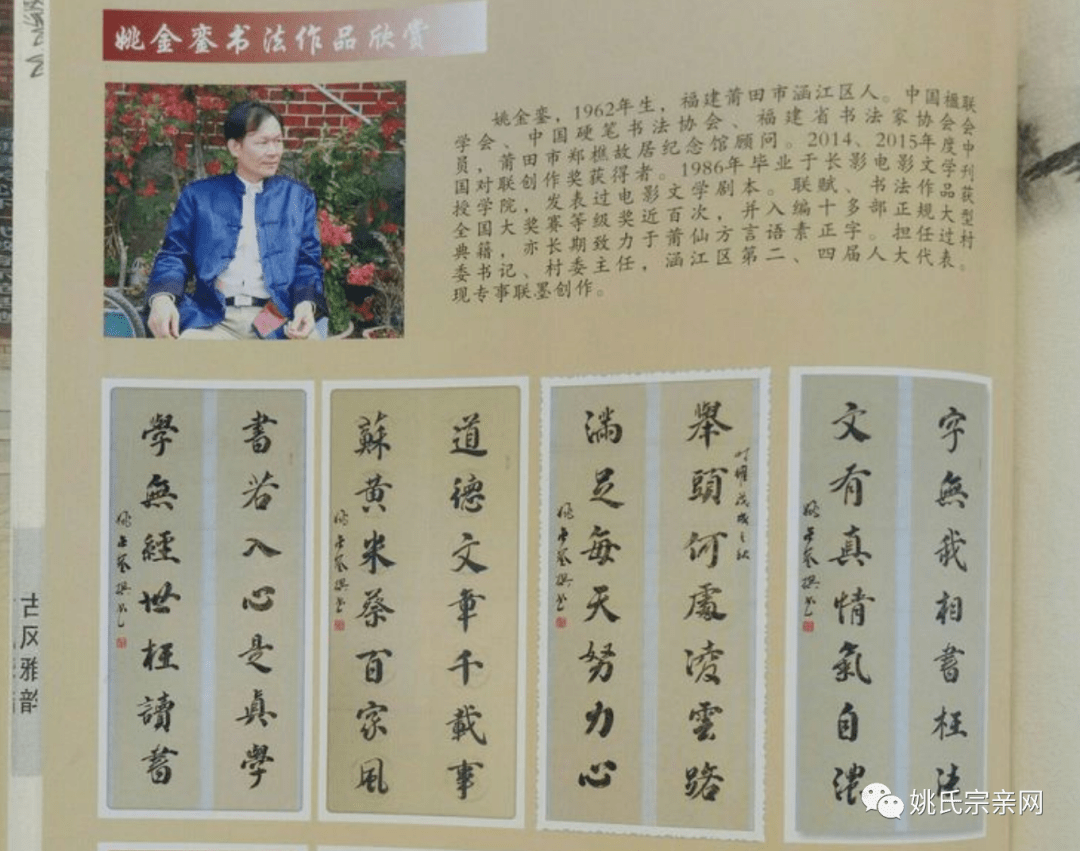 姚金銮书法作品欣赏
姚金銮，1962年生，福建莆田市涵江区人。中国楹联
学会、中国硬笔书法协会、福建省书法家协会会
员，莆田市郑樵故居纪念馆顾问。2014、2015年度中
国对联创作奖获得者。1986年毕业于长影电影文学刊
授学院，发表过电影文学剧本。联赋、书法作品获
全国大奖赛等级奖近百次，并入编十多部正规大型
典籍，亦长期致力于莆仙方言语素正字。担任过村
委书记、村委主任，涵江区第二、四届人大代表。
现专事联墨创作。
書若入心是真學
學無經世枉讀書
道德文章千載事
蘇黄米蔡百家風
舉頭何處凌雲路
滿足每天努力心
字無我相書枉法
文有真情氣自濃
古风雅韵
姚氏宗亲网